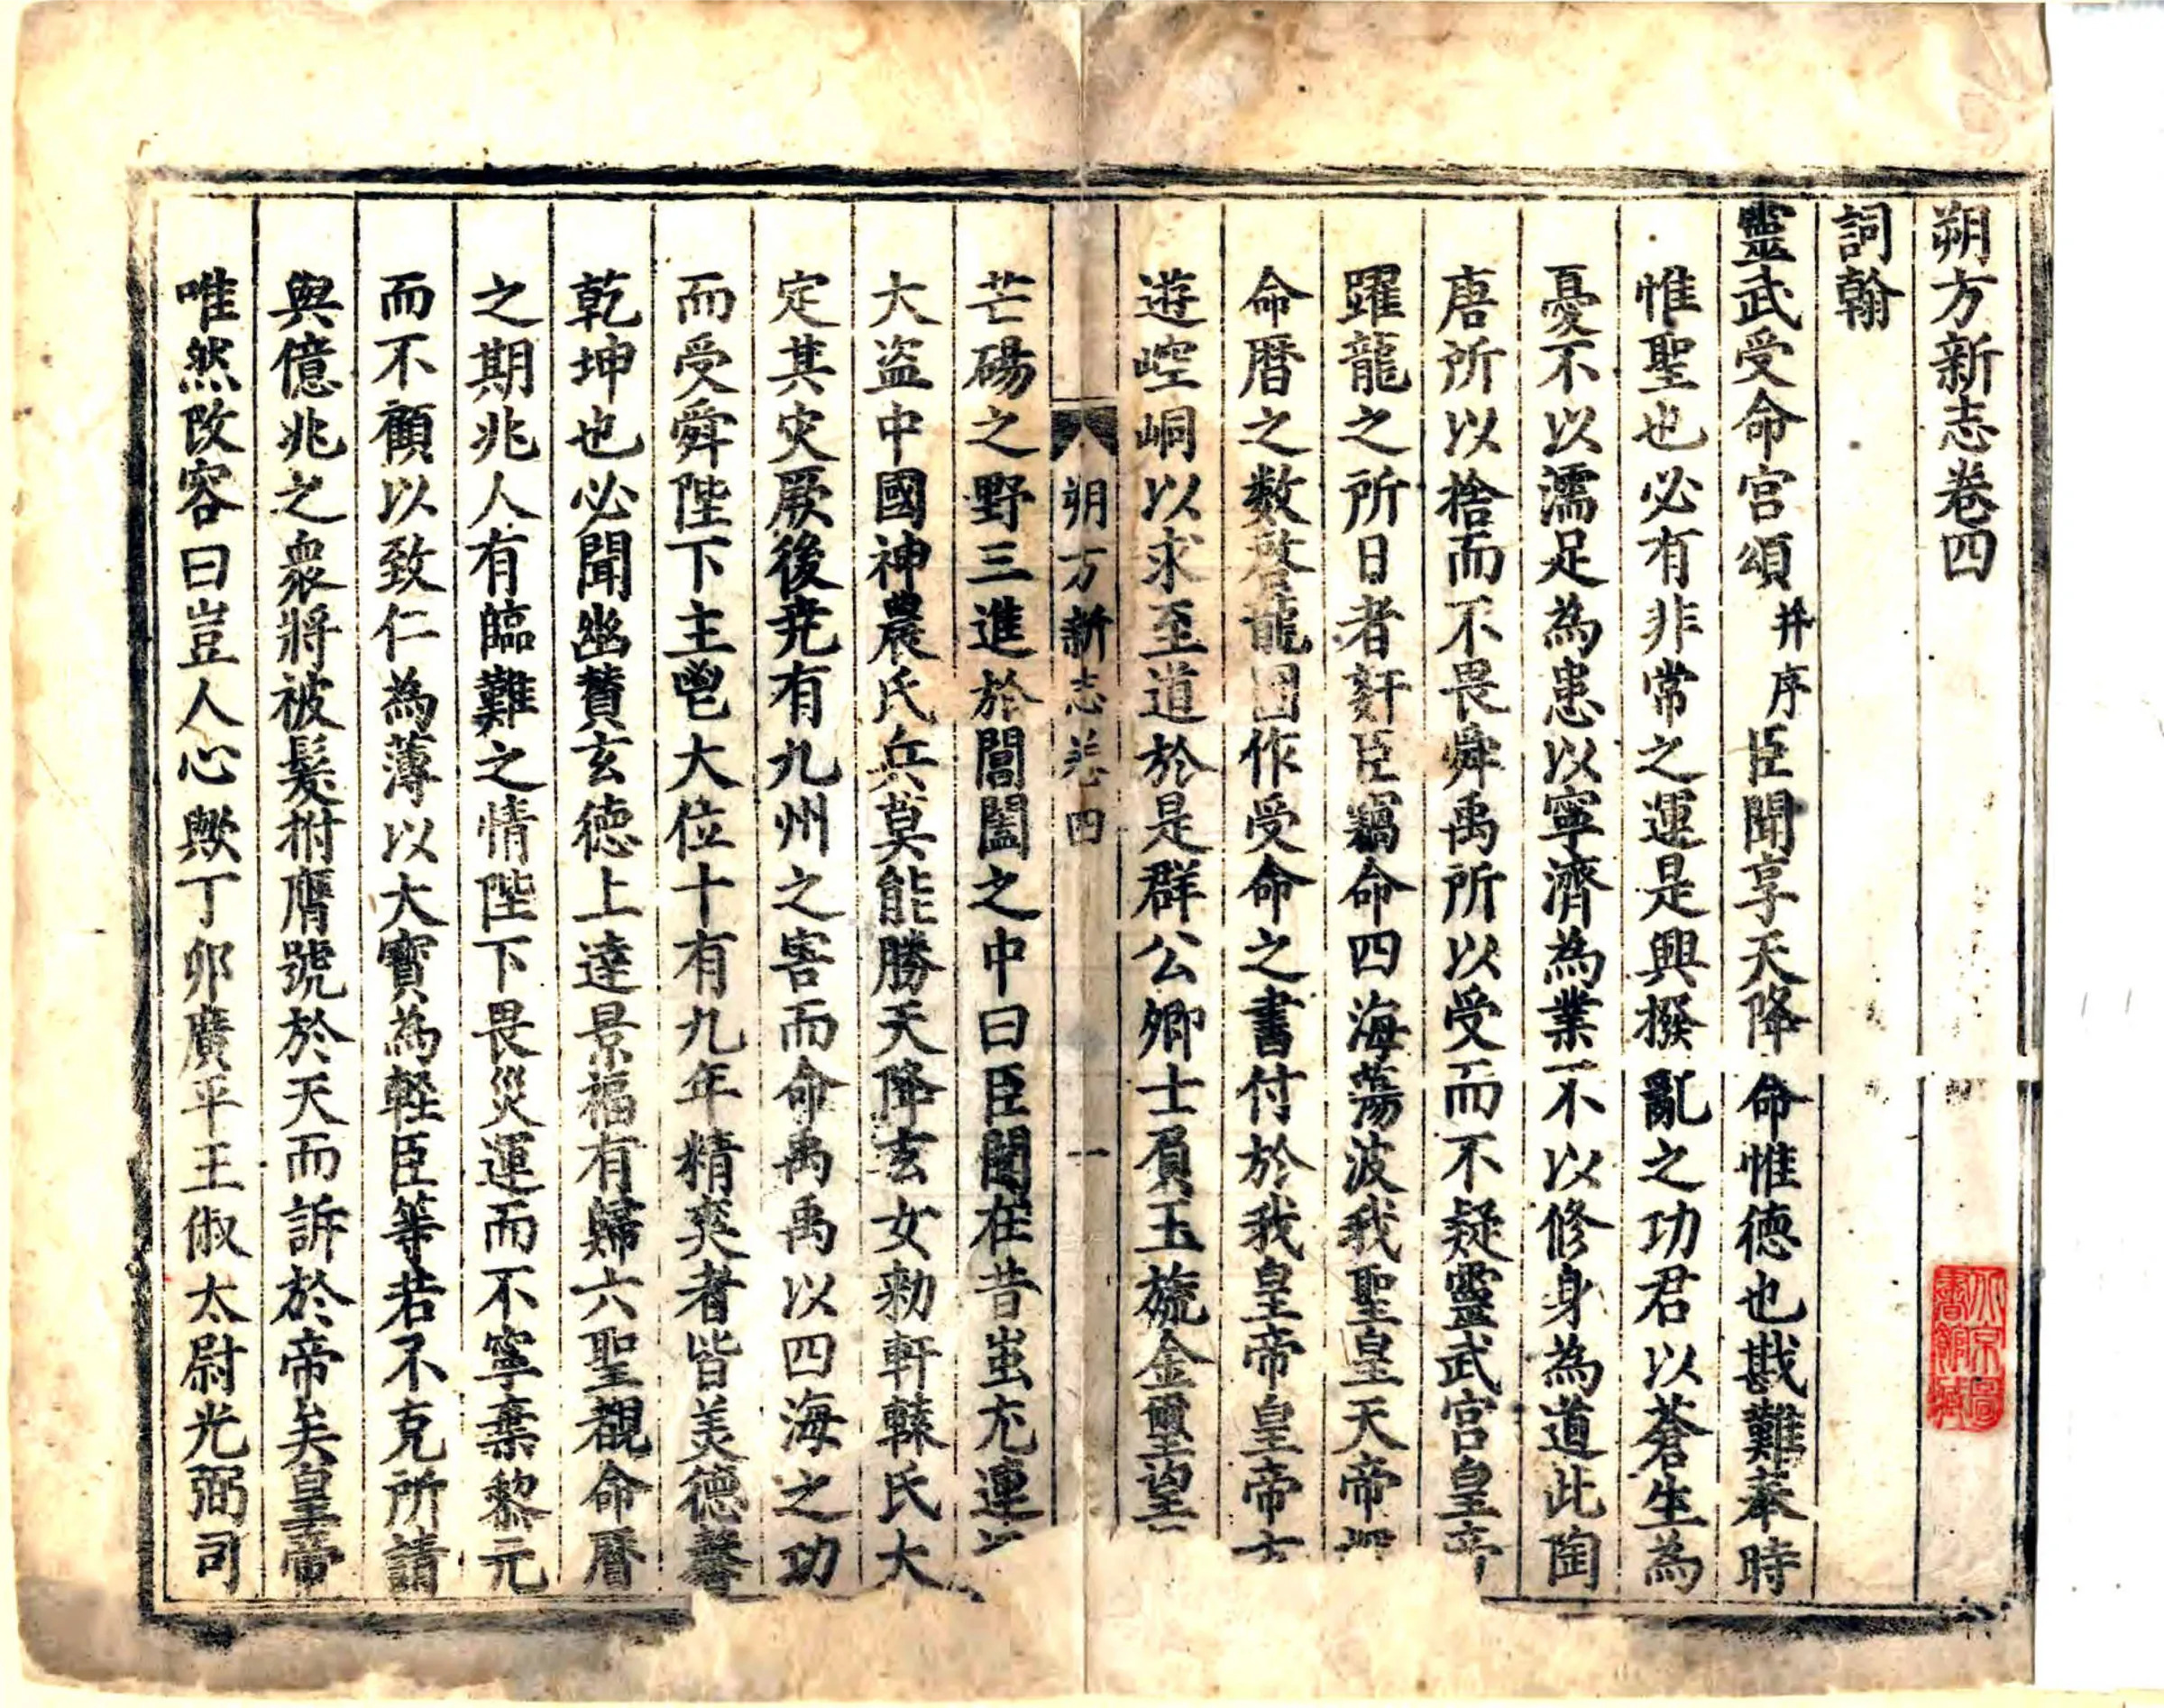 朔方新志卷四
詞翰
靈武受命宫頌并序臣聞享天降命惟德也戡難奉時
惟聖也必有非常之運是興撥亂之功君以蒼生為
憂不以濡足為患以寧濟為業不以修身為道此陶
唐所以捨而不畏舜禹所以受而不疑靈武宫皇帝
躍龍之所日者姧臣竊命四海蕩波我聖皇天帝
命曆之數啓龍圖作受命之書付於我皇帝皇帝方
遊崆峒以求至道於是群公卿士肩玉旒金璽望
朔方新志卷四
一
芒碭之野三進於閶闔之中曰臣聞在昔蚩尤連
大盗中國神農氏兵莫能勝天降玄女勑軒轅氏大
定其灾厥後尭有九州之害而命禹禹以四海之功
而受舜陛下主鬯大位十有九年精爽者皆美德馨
乾坤也必聞幽賛玄德上達景福有歸六聖覩命曆
之期兆人有臨難之情陛下畏災運而不寧棄黎元
而不顧以致仁為薄以大寶為輕臣等若不克所請
與億兆之衆將被髮拊膺號於天而訴於帝矣皇帝
唯然改容曰豈人心歟丁卯廣平王俶太尉光弼司